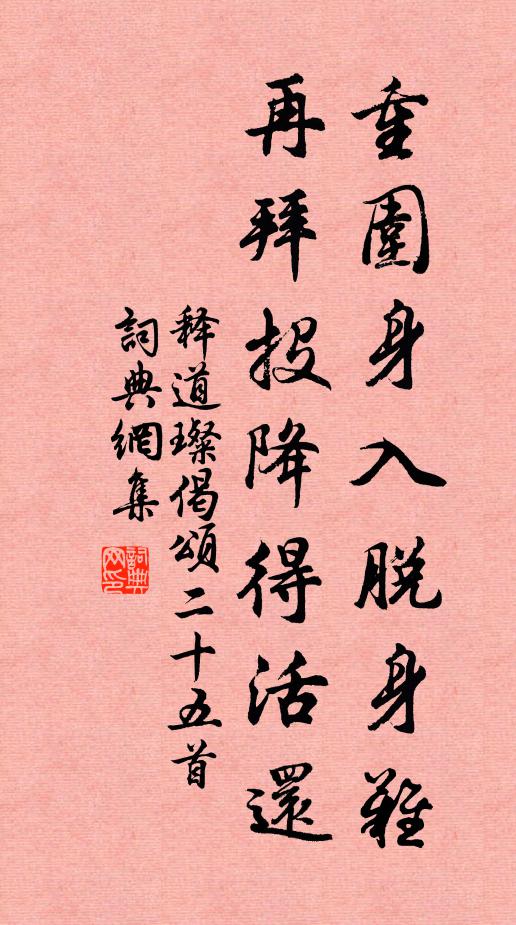 重圍身入脫身難
再拜投降得活還
释道璨偈頌二十五首
詞典網集
詞典网印